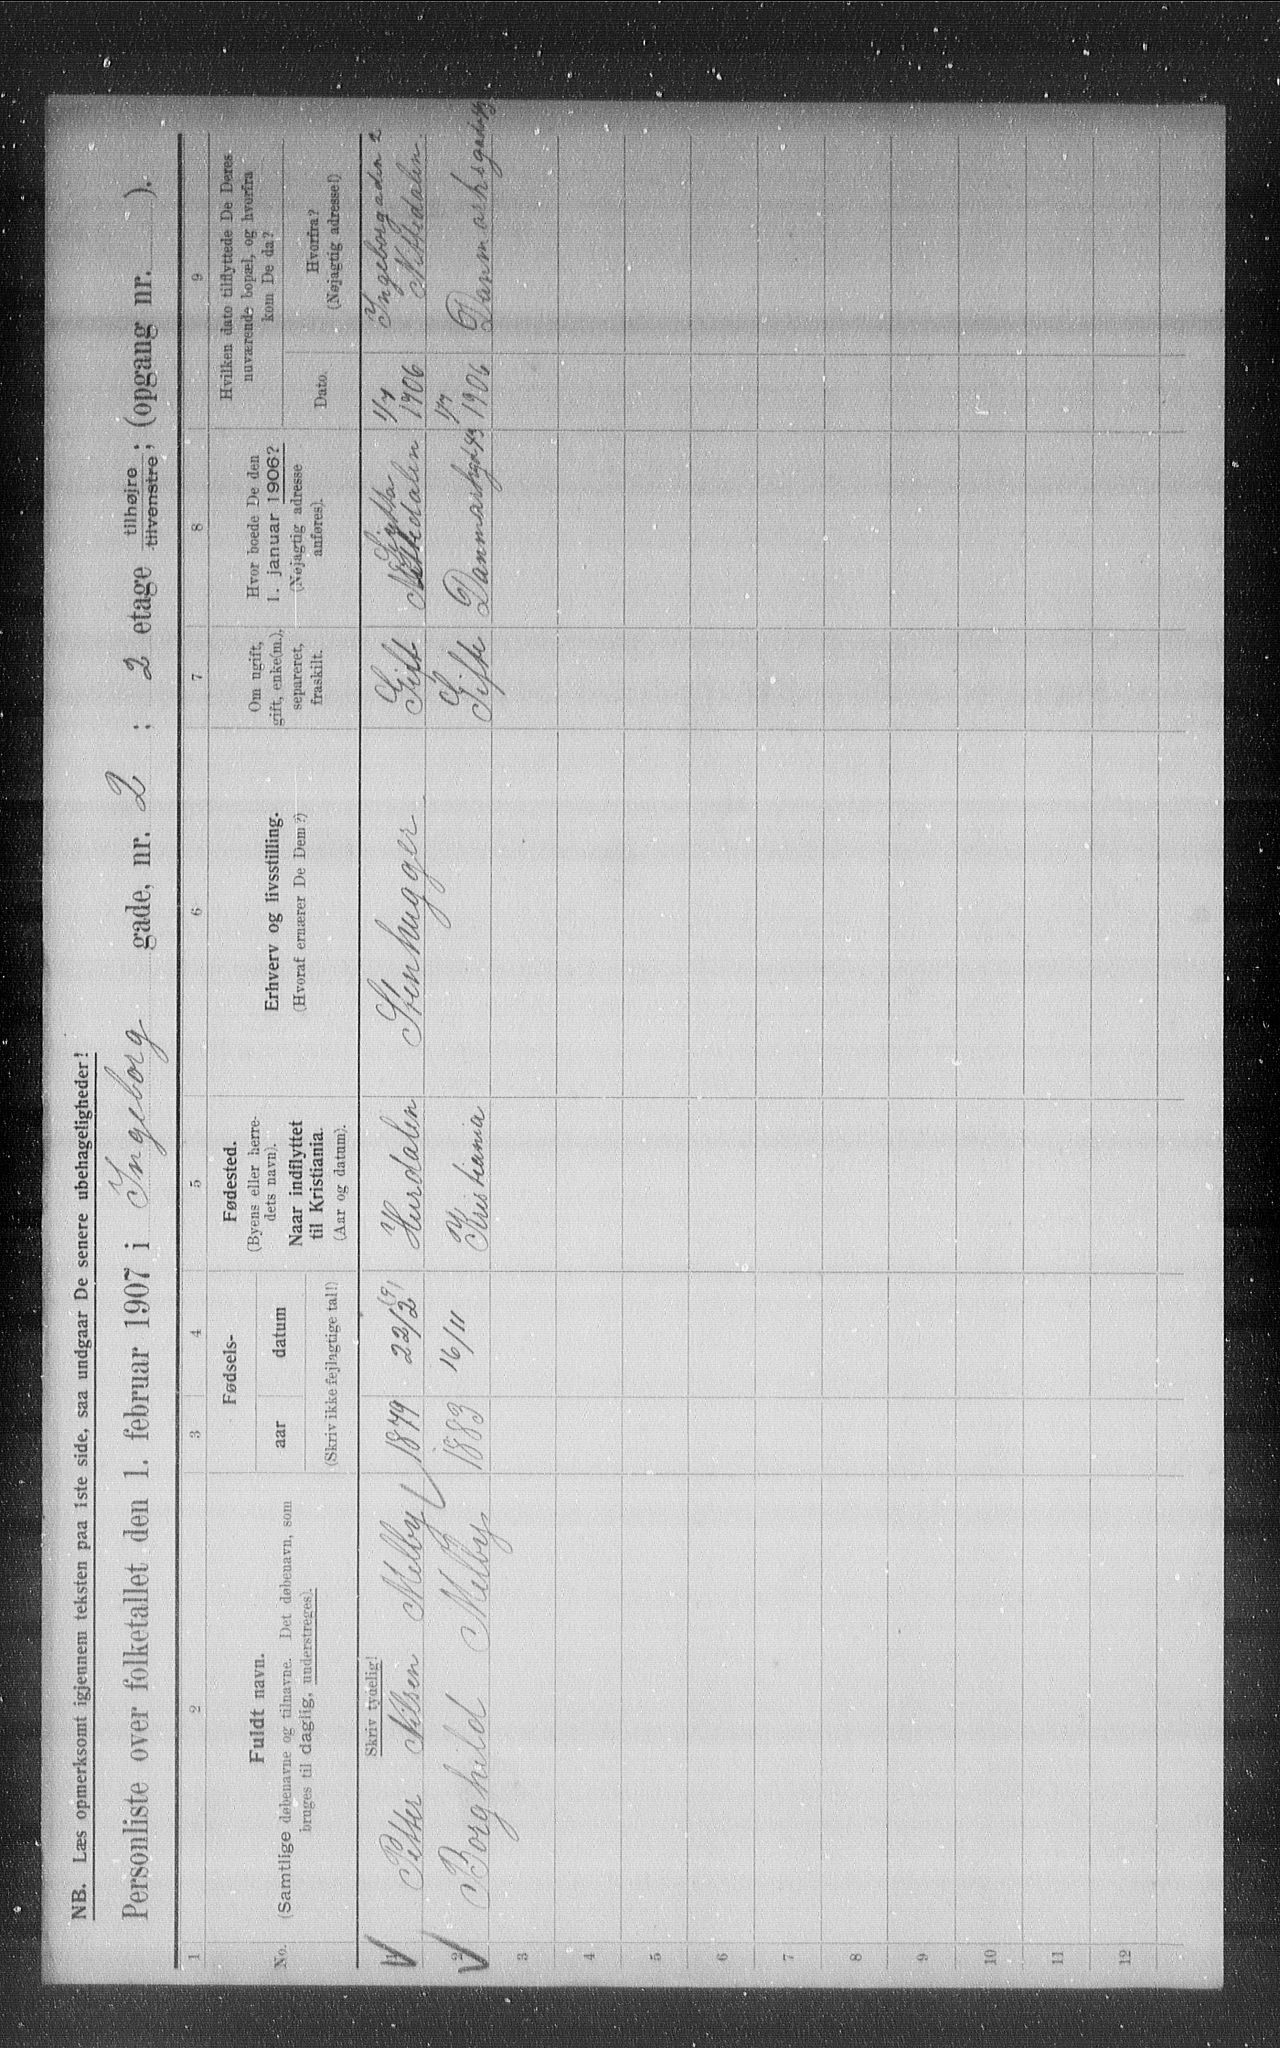 NB. Læs opmerksomt igjennem teksten paa 1ste side, saa undgaar De senere ubehageligheder!
Personliste over folketallet den 1. februar 1907 i Ingeborg gade, nr. 2 : 2 etage tilhøjre tilvenstre ; (opgang nr. ).
1 2 3 4 5 6 7 8 9
No.
Fuldt navn.
(Samtlige døbenavne og tilnavne. Det døbenavn, som
bruges til daglig, understreges).
Fødsels-
aar datum
(Skriv ikke fejlagtige tal!)
Fødested.
(Byens eller herre-
dets navn).
Naar indflyttet
til Kristiania.
(Aar og datum).
Erhverv og livsstilling.
(Hvoraf ernærer De Dem?)
Om ugift,
gift, enke(m.),
separeret,
fraskilt.
Hvor boede De den
1. januar 1906?
(Nøjagtig adresse
anføres).
Hvilken dato tilflyttede De Deres
nuværende bopæl, og hvorfra
kom De da?
Dato.
Hvorfra?
(Nøjagtig adresse!)
Skriv tydelig!
1 Petter Nilsen Melby 1879 22/2 Hurdalen Stenhugger Gift Nittedalen 1/7 1906 Ingeborgaden 2 Nittedalen.
2 Borghild Melby 1883 16/11 Kristiania Gifte 1/7 1906
3
4
5
6
7
8
9
10
11
12